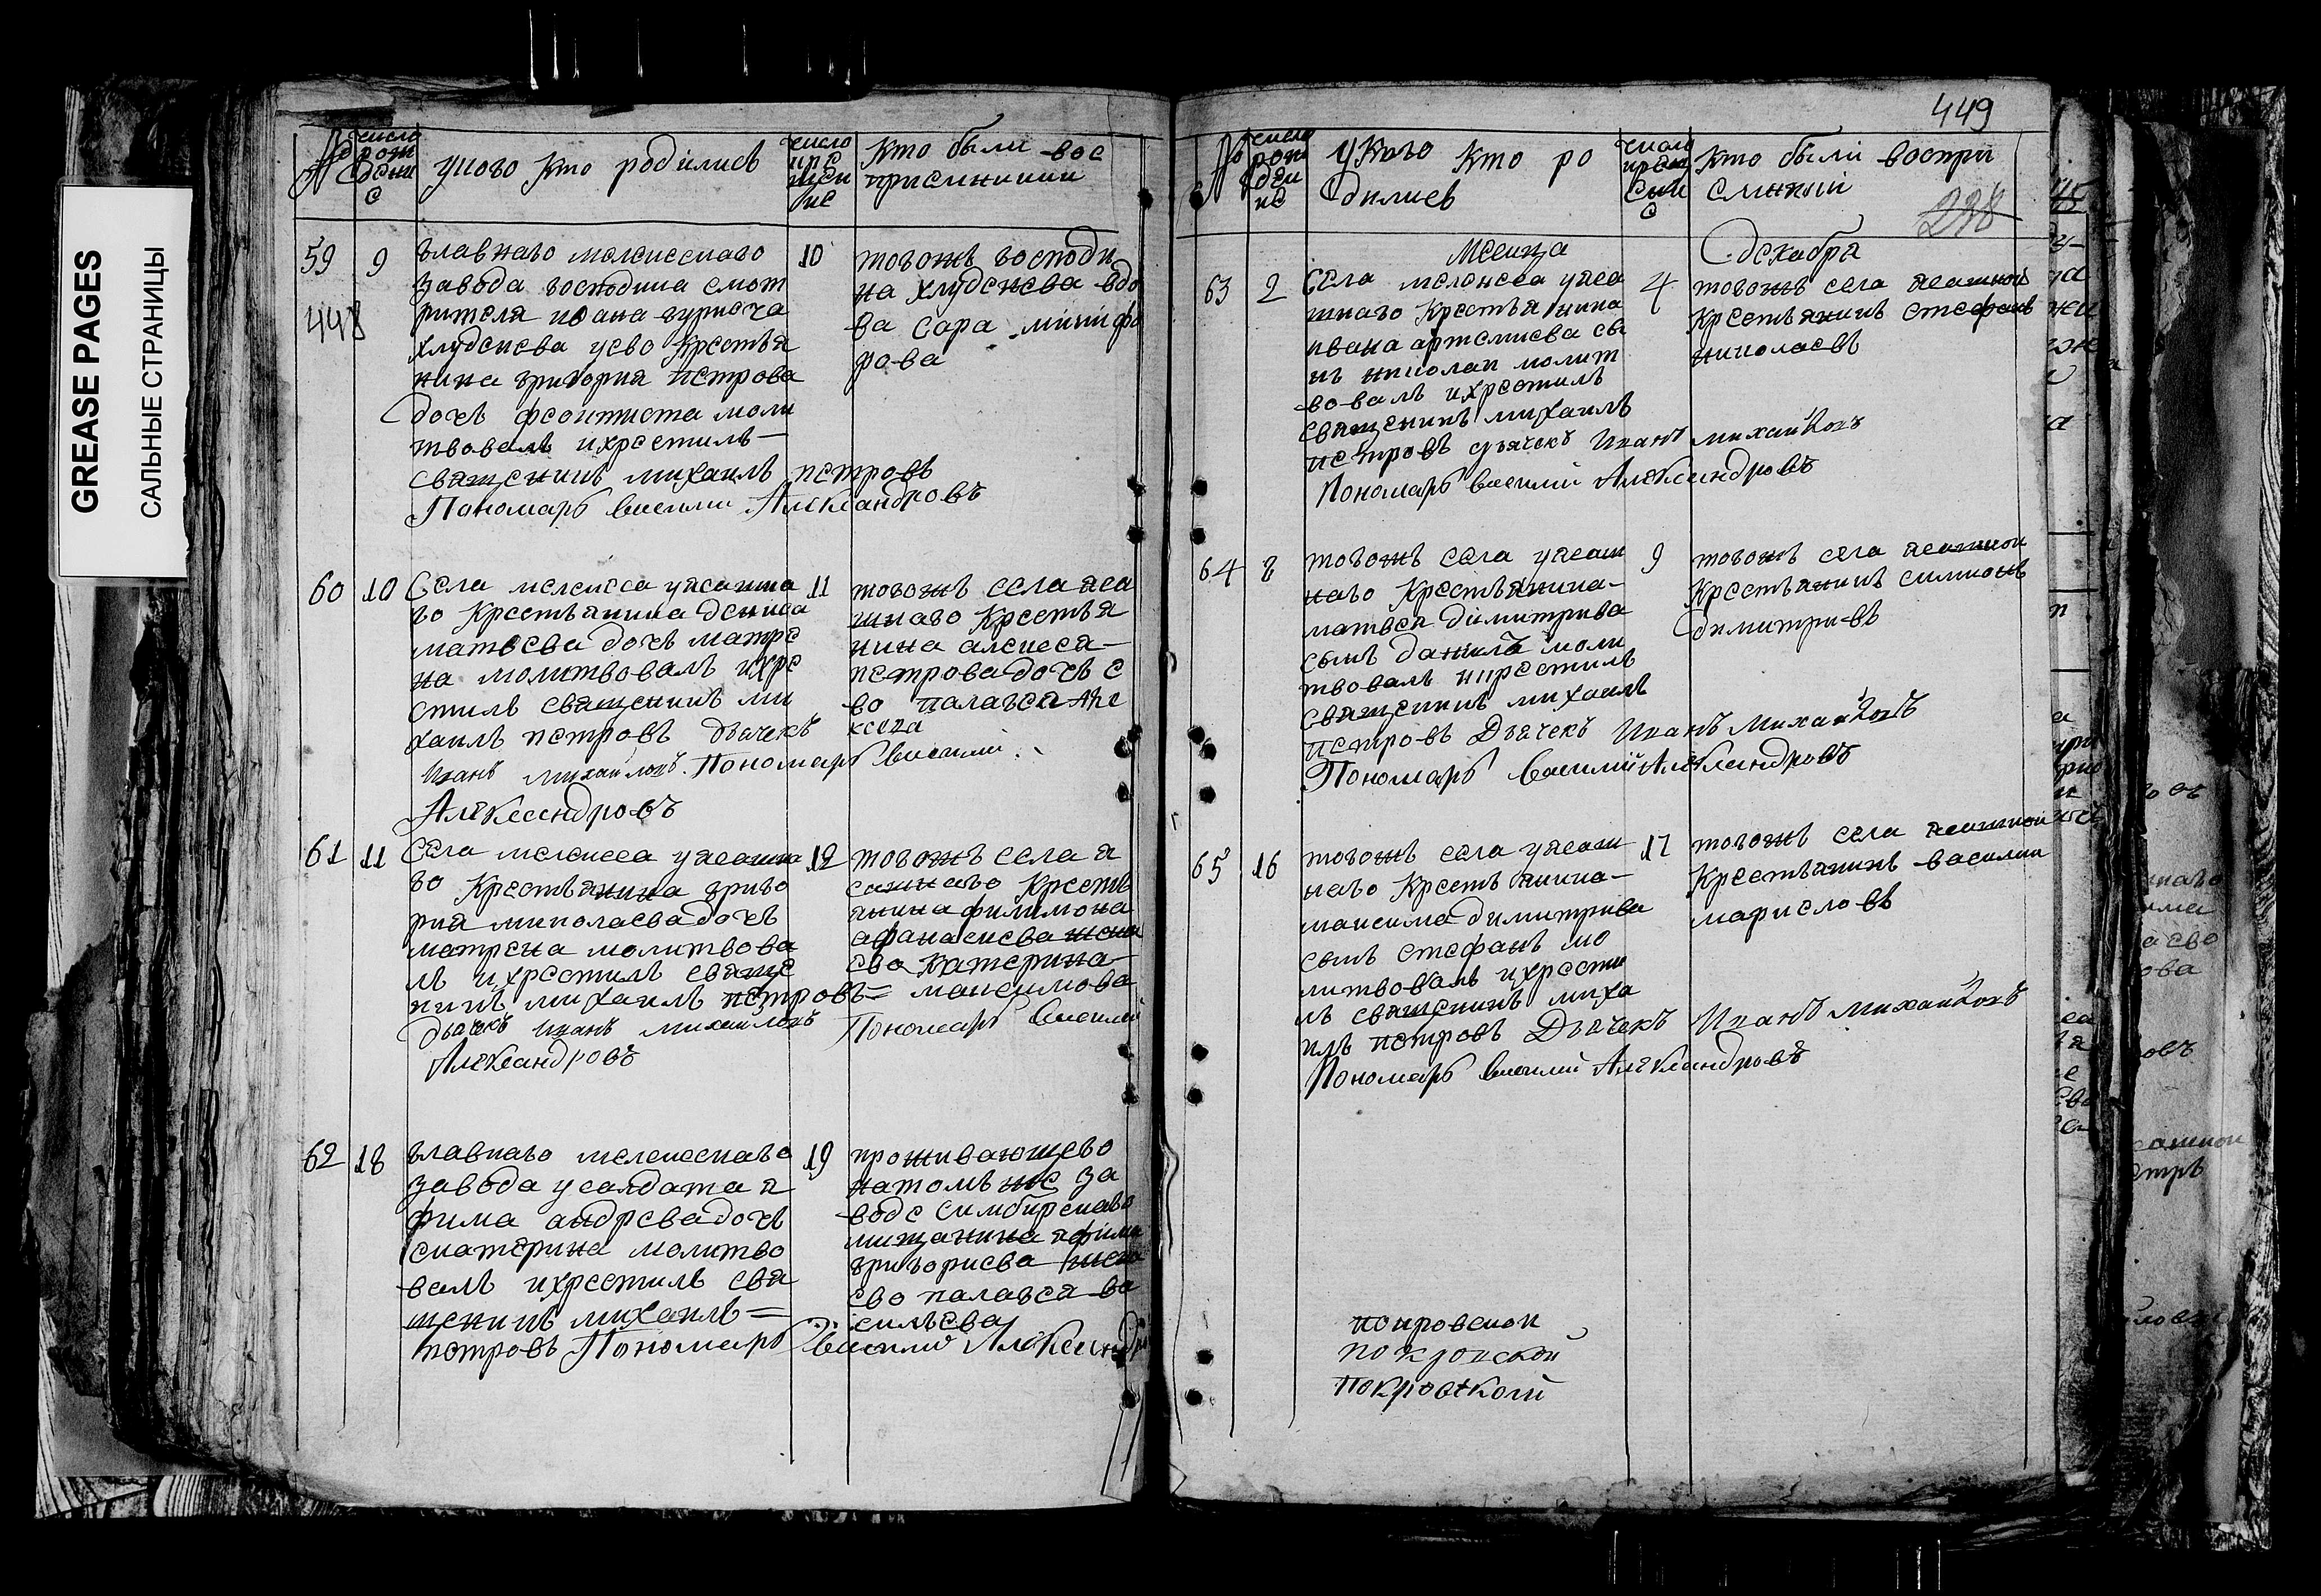 GREASE PAGES
САЛЬНЫЕ СТРАНИЦЫ
№
число рож дени е
укого кто родились
число кре щени ие
кто были вос
приемники
59
9
главнаго мелекескаго
завода господина смот
рителя ивана гурьеча
хлуденева уево крестья
нина григория петрова
дочь феоктиста моли
твовалъ икрестилъ
священникъ михаилъ петровъ
Пономарь василий Александровъ
10
тогожъ господи
на хлуденева вдо
ва сара никифо
рова
448
60
10
Села мелекеса уясашна
го крестьянина дениса
матвева дочь матре
на молитвовалъ икре
стилъ священникъ ми
хаилъ петровъ дьячекъ
Иванъ михайловъ Пономарь василий
Александровъ
11
тогожъ села яса
шнаго крестья
нина алексея
петрова дочь е
во палагея Але
ксеева
61
11
Села мелекеса уясашна
го крестьянина григо
рия николаева дочь
матрена молитвова
лъ икрестилъ свяще
никъ михаилъ петровъ
дьячекъ иванъ михайловъ Пономарь василий
Александровъ
12
тогожъ села я
сашнаго кресть
янина филимона
афанасиева жена
ево катерина
максимова
62
18
главнаго мелекескаго
завода усолдата я
фима андрева дочь
екатерина молитво
валъ икрестилъ свя
щеникъ михаилъ
петровъ Пономарь василий Александро
19
проживающево
натомъ же за
воде симбирскаго
мищанина яфима
григориева жена
ево палагея ва
сильева
449
238
№
число рож дени ие
укого кто ро
дились
число креще ние
кто были воспри
емники
месица декабря
63
2
Села мелекеса уяса
шнаго крестьянина
ивана артемиева сы
нъ николай молит
вовалъ икрестилъ
священикъ михаилъ
петровъ дьячекъ Иванъ михайловъ
Пономарь василий Александровъ
4
тогожъ села ясашной
крестьянинъ стефанъ
николаевъ
64
8
тогожъ села уясаш
наго крестьянина
матвея димитрива
сынъ данила моли
твовалъ икрестилъ
священикъ михаилъ
петровъ Дьячекъ Иванъ Михайловъ
Пономарь василий Александровъ
9
тогожъ села ясашной
крестьянинъ симионъ
димитривъ
65
16
тогожъ села уясаш
наго крестьянина
максима димитрива
сынъ стефанъ мо
литвовалъ икрести
лъ священикъ миха
илъ петровъ Дьячекъ Иванъ михайловъ
Пономарь василий Александровъ
17
тогожъ села ясашной
крестьянинъ василий
покровской
покровской
покровской